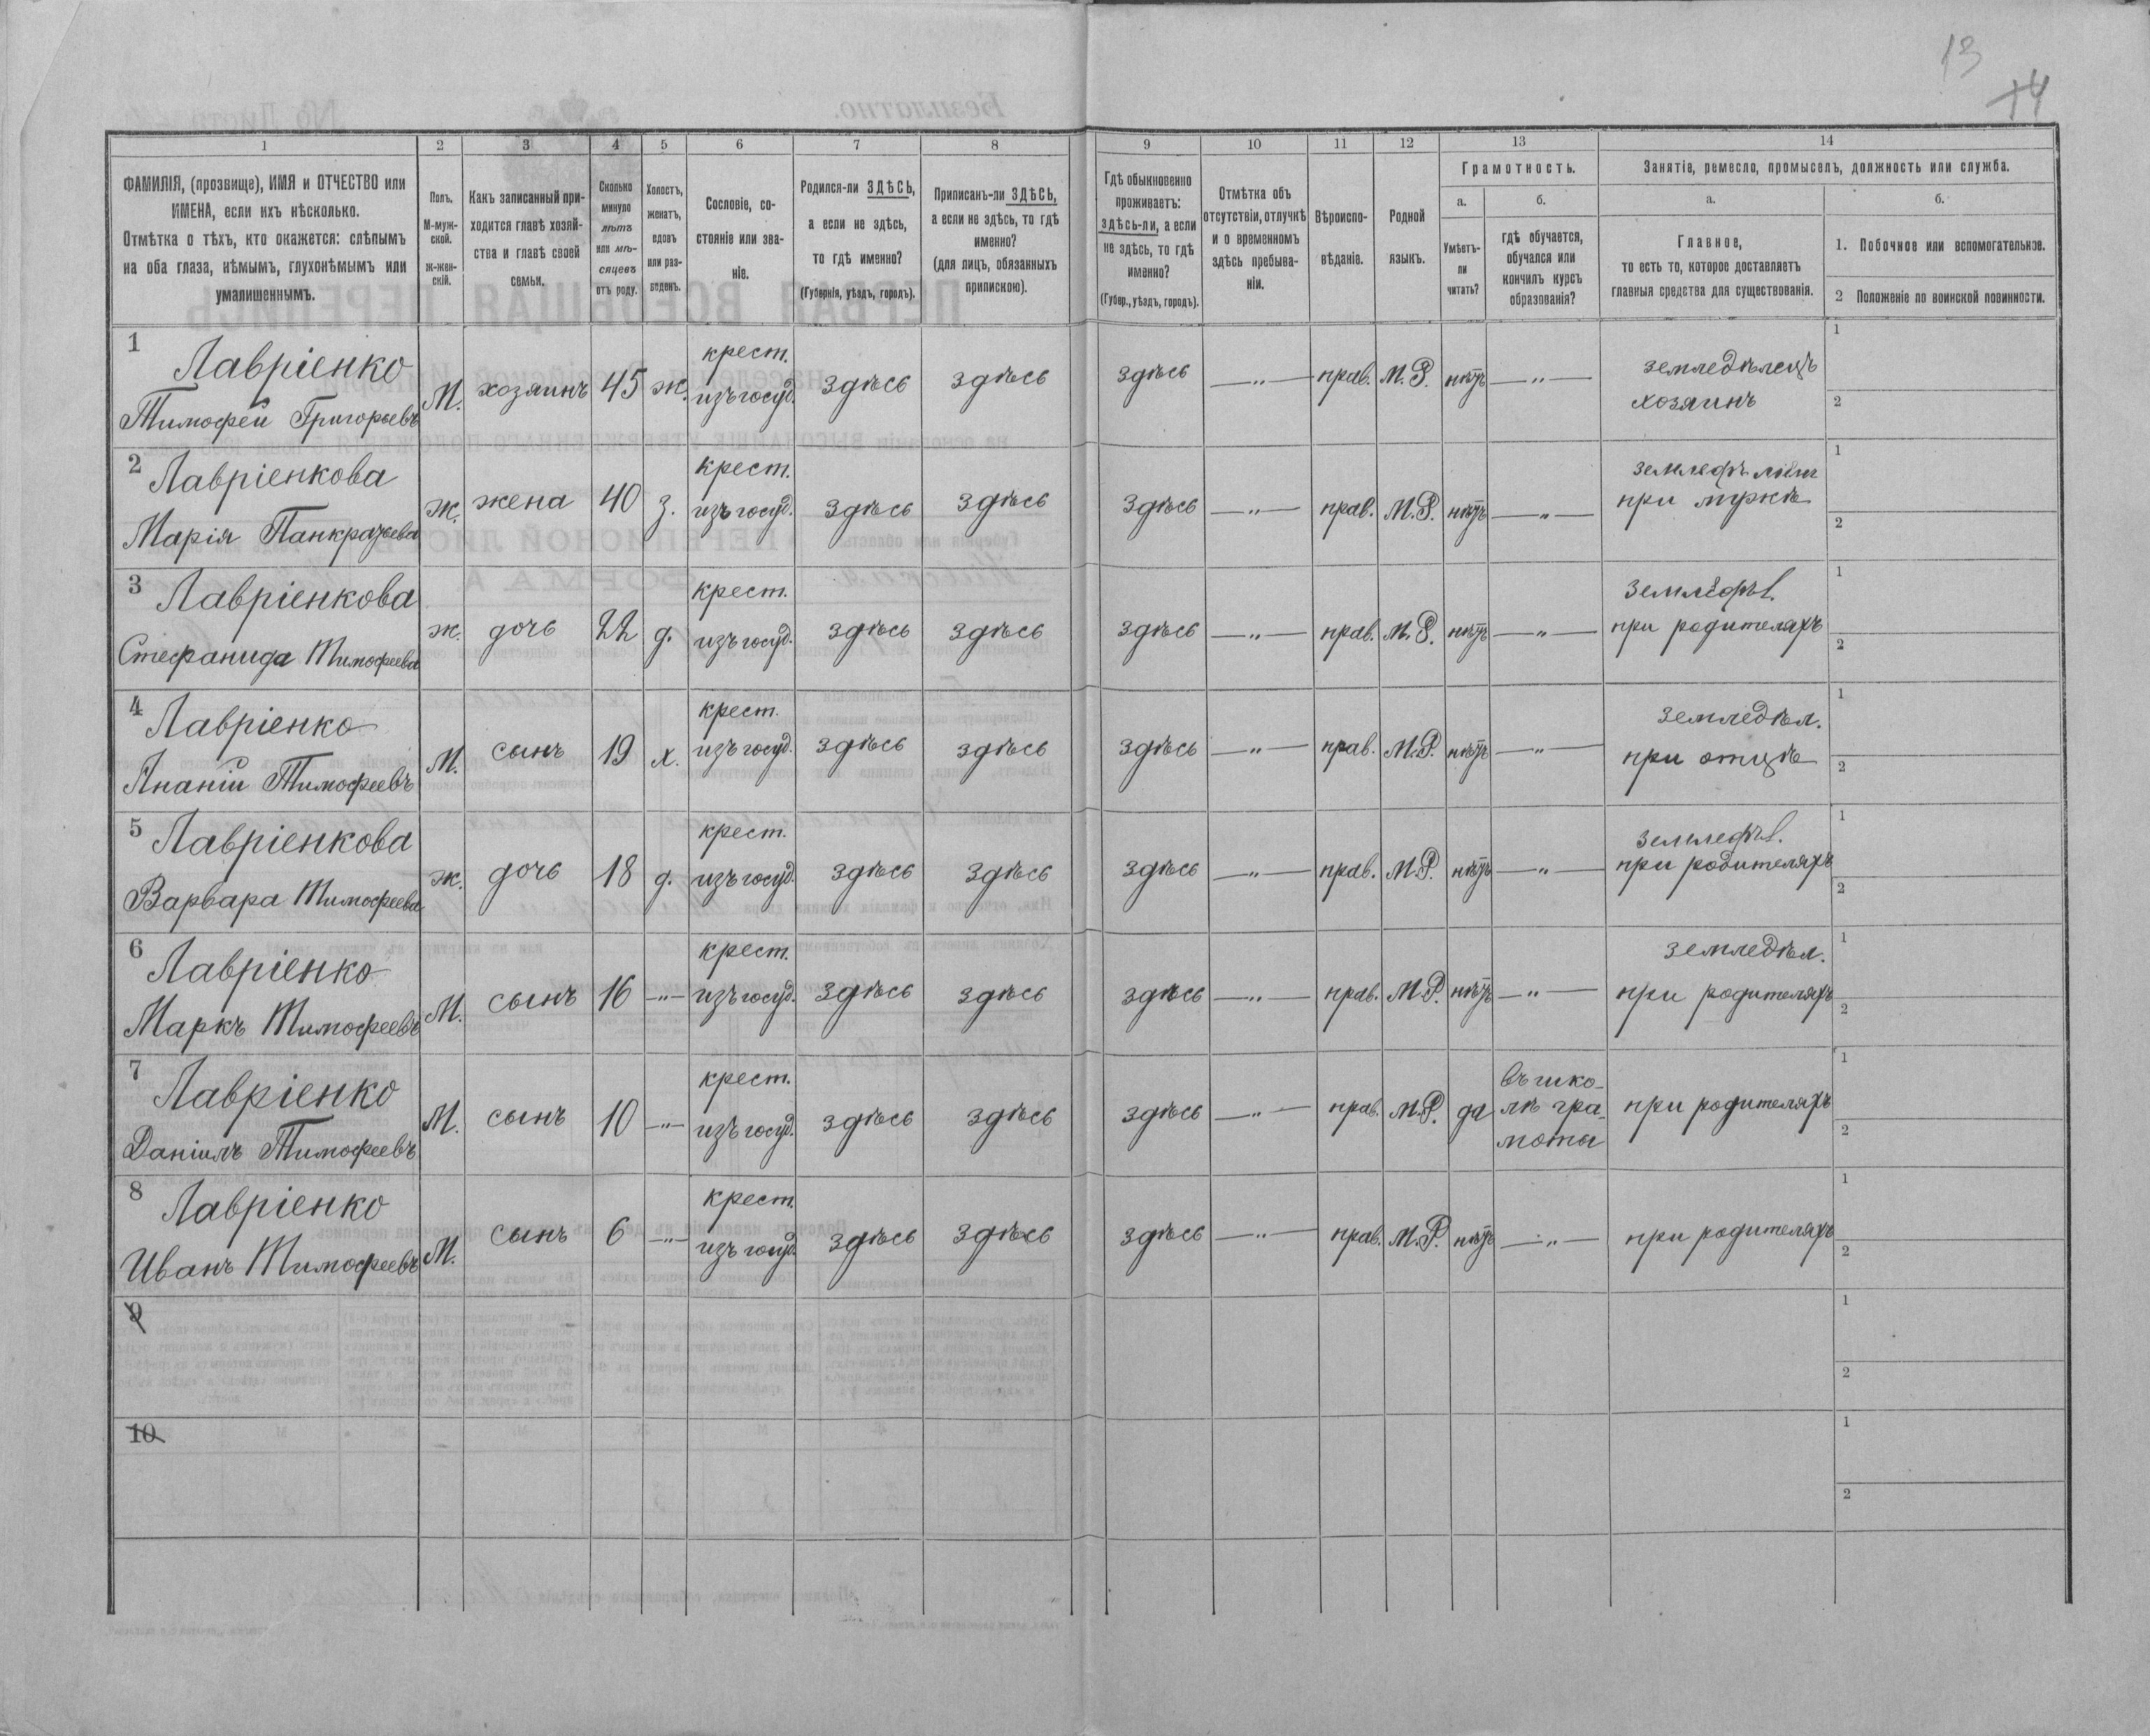 13
14
1 2 3 4 5 6 7 8 9 10 11 12 13 14
ФАМИЛІЯ, (прозвище), ИМЯ и ОТЧЕСТВО или
ИМЕНА, если ихъ нѣсколько.
Отмѣтка о тѣхъ, кто окажется: слѣпымъ
на оба глаза, нѣмымъ, глухонѣмымъ или
умалишеннымъ.
Полъ.
М-муж-
ской.
ж-жен-
скій.
Какъ записанный при-
ходится главѣ хозяй-
ства и главѣ своей
семьи.
Сколько
минуло
лѣтъ
или мѣ-
сяцевъ
отъ роду.
Холостъ,
женатъ,
вдовъ
или раз-
веденъ.
Сословіе, со-
стояніе или зва-
ніе.
Родился-ли ЗДѢСЬ,
а если не здѣсь,
то гдѣ именно?
(Губернія, уѣздъ, городъ).
Приписанъ-ли ЗДѢСЬ,
а если не здѣсь, то гдѣ
именно?
(для лицъ, обязанныхъ
припискою).
Гдѣ обыкновенно
проживаетъ:
здѣсь-ли, а если
не здѣсь, то гдѣ
именно?
(Губер., уѣздъ, городъ).
Отмѣтка объ
отсутствіи, отлучкѣ
и о временномъ
здѣсь пребыва-
ніи.
Вѣроиспо-
вѣданіе.
Родной
языкъ.
Грамотность.
а.
Умѣетъ-
ли
читать?
б.
гдѣ обучается,
обучался или
кончилъ курсъ
образованія?
Занятіе, ремесло, промыселъ, должность или служба.
а.
Главное,
то есть то, которое доставляетъ
главныя средства для существованія.
б.
1. Побочное или вспомогательное.
2 Положеніе по воинской повинности.
1
Лавріенко
Тимофей Григорьевъ
М.
хозяинъ
45
ж.
крест.
изъ госуд.
здѣсь
здѣсь
здѣсь
—„—
прав.
М.Р.
нѣтъ
—„—
земледѣлецъ
хозяинъ
1
2
2
Лавріенкова
Марія Панкратьева
ж.
жена
40
з.
крест.
изъ госуд.
здѣсь
здѣсь
здѣсь
—„—
прав.
М.Р.
нѣтъ
—„—
при мужѣ
1
2
3
Лавріенкова
Стефанида Тимофеева
ж.
дочь
22
д.
крест.
изъ госуд.
здѣсь
здѣсь
здѣсь
—„—
прав.
М.Р.
нѣтъ
—„—
при родителяхъ
1
2
4
Лавріенко
Ананій Тимофеевъ
М.
сынъ
19
х.
крест.
изъ госуд.
здѣсь
здѣсь
здѣсь
—„—
прав.
М.Р.
нѣтъ
—„—
земледѣл.
при отцѣ
1
2
5
Лавріенкова
Варвара Тимофеева
ж.
дочь
18
д.
крест.
изъ госуд.
здѣсь
здѣсь
здѣсь
—„—
прав.
М.Р.
нѣтъ
—„—
при родителяхъ
1
2
6
Лавріенко
Маркъ Тимофеевъ
М.
сынъ
16
—„—
крест.
изъ госуд.
здѣсь
здѣсь
здѣсь
—„—
прав.
М.Р.
нѣтъ
—„—
земледѣл.
при родителяхъ
1
2
7
Лавріенко
Даніилъ Тимофеевъ
М.
сынъ
10
—„—
крест.
изъ госуд.
здѣсь
здѣсь
здѣсь
—„—
прав.
М.Р.
да
въ шко-
лѣ гра-
моты
при родителяхъ
1
2
8
Лавріенко
Иванъ Тимофеевъ
М.
сынъ
6
—„—
крест.
изъ госуд.
здѣсь
здѣсь
здѣсь
—„—
прав.
М.Р.
нѣтъ
—„—
при родителяхъ
1
2
9
1
2
10
1
2